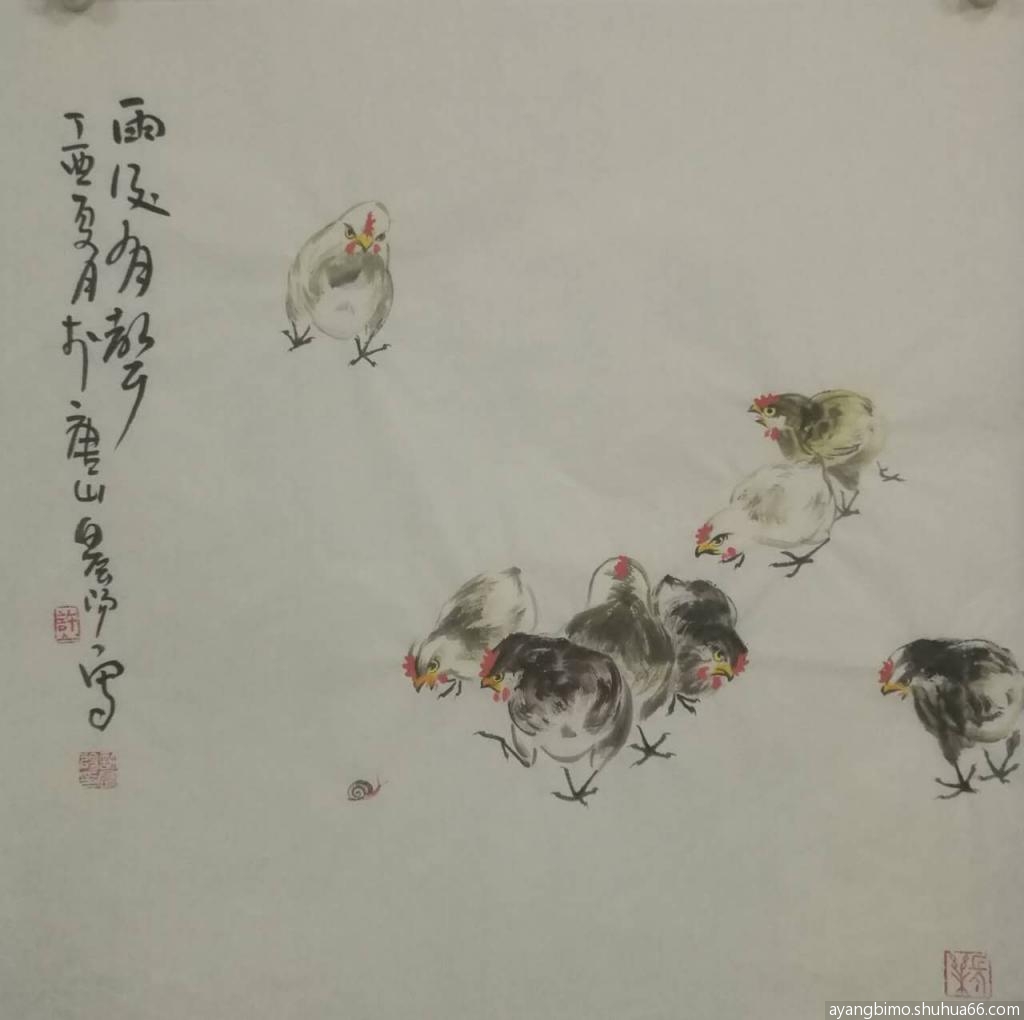 雨後有聲
丁酉夏月於唐山晨陽寫
許
ayangbimo.shuhua66.com